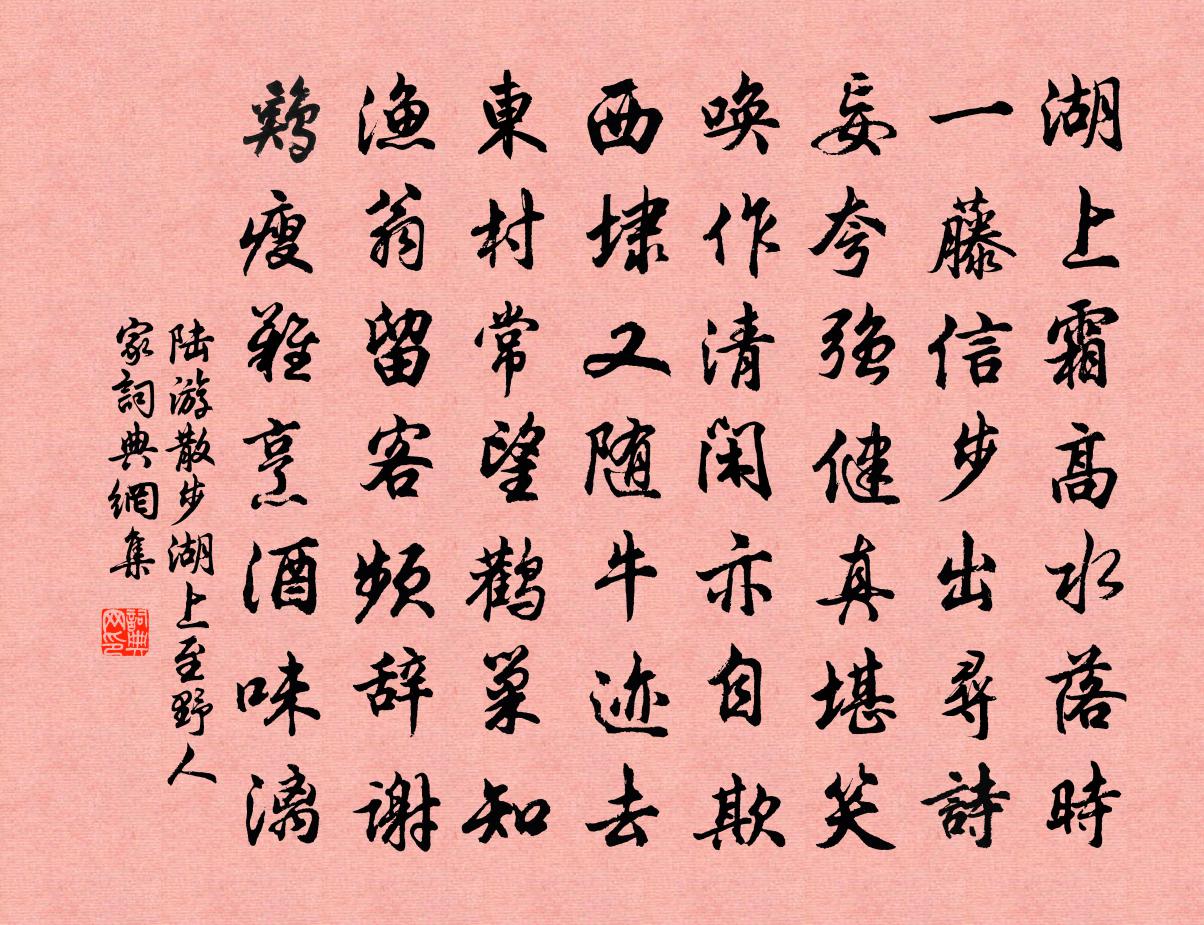 湖上霜高水落時
一藤信步出尋詩
妄夸強健真堪笑
喚作清閑亦自欺
西埭又随牛迹去
東村常望鸛巢知
漁翁留客頻辞謝
鷄瘦難烹酒味漓
陆游散步湖上至野人
家詞典網集
詞典
网印